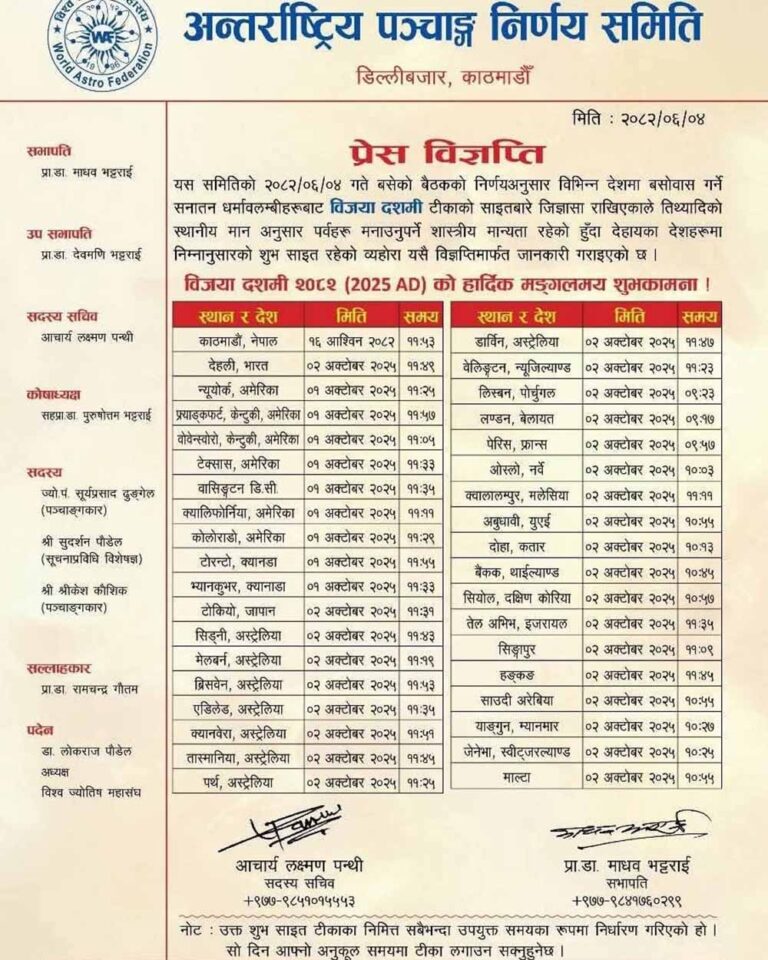 विश्व ज्योतिष महासंघ
WAF
1996
World Astro Federation
अन्तर्राष्ट्रिय पञ्चाङ्ग निर्णय समिति
डिल्लीबजार, काठमाडौँ
मिति : २०८२/०६/०४
सभापति
प्रा.डा. माधव भट्टराई
उप सभापति
प्रा.डा. देवमणि भट्टराई
सदस्य सचिव
आचार्य लक्ष्मण पन्थी
कोषाध्यक्ष
सहप्रा.डा. पुरुषोत्तम भट्टराई
सदस्य
ज्यो.पं. सूर्यप्रसाद ढुङ्गेल
(पञ्चाङ्गकार)
श्री सुदर्शन पौडेल
(सूचनाप्रविधि विशेषज्ञ)
श्री श्रीकेश कौशिक
(पञ्चाङ्गकार)
सल्लाहकार
प्रा.डा. रामचन्द्र गौतम
पदेन
डा. लोकराज पौडेल
अध्यक्ष
विश्व ज्योतिष महासंघ
प्रेस विज्ञप्ति
यस समितिको २०८२/०६/०४ गते बसेको बैठकको निर्णयअनुसार विभिन्न देशमा बसोवास गर्ने
सनातन धर्मावलम्बीहरूबाट विजया दशमी टीकाको साइतबारे जिज्ञासा राखिएकाले तिथ्यादिको
स्थानीय मान अनुसार पर्वहरू मनाउनुपर्ने शास्त्रीय मान्यता रहेको हुँदा देहायका देशहरूमा
निम्नानुसारको शुभ साइत रहेको व्यहोरा यसै विज्ञप्तिमार्फत जानकारी गराइएको छ ।
विजया दशमी २०८२ (2025 AD) को हार्दिक मङ्गलमय शुभकामना !
स्थान र देश मिति समय
काठमाडौं, नेपाल १६ आश्विन २०८२ ११:५३
देहली, भारत ०२ अक्टोबर २०२५ ११:४९
न्यूयोर्क, अमेरिका ०१ अक्टोबर २०२५ ११:२५
फ्र्याङ्कफर्ट, केन्टुकी, अमेरिका ०१ अक्टोबर २०२५ ११:५७
वोवेन्स्वोरो, केन्टुकी, अमेरिका ०१ अक्टोबर २०२५ ११:०५
टेक्सास, अमेरिका ०१ अक्टोबर २०२५ ११:३३
वासिङ्टन डि.सी. ०१ अक्टोबर २०२५ ११:३५
क्यालिफोर्निया, अमेरिका ०१ अक्टोबर २०२५ ११:११
कोलोराडो, अमेरिका ०१ अक्टोबर २०२५ ११:२९
टोरन्टो, क्यानडा ०१ अक्टोबर २०२५ ११:५५
भ्यानकुभर, क्यानाडा ०१ अक्टोबर २०२५ ११:३३
टोकियो, जापान ०२ अक्टोबर २०२५ ११:३१
सिड्नी, अस्ट्रेलिया ०२ अक्टोबर २०२५ ११:४३
मेलबर्न, अस्ट्रेलिया ०२ अक्टोबर २०२५ ११:१९
ब्रिसवेन, अस्ट्रेलिया ०२ अक्टोबर २०२५ ११:५३
एडिलेड, अस्ट्रेलिया ०२ अक्टोबर २०२५ ११:३५
क्यानवेरा, अस्ट्रेलिया ०२ अक्टोबर २०२५ ११:५१
तास्मानिया, अस्ट्रेलिया ०२ अक्टोबर २०२५ ११:४५
पर्थ, अस्ट्रेलिया ०२ अक्टोबर २०२५ ११:२५
स्थान र देश मिति समय
डार्विन, अस्ट्रेलिया ०२ अक्टोबर २०२५ ११:४७
वेलिङ्टन, न्यूजिल्याण्ड ०२ अक्टोबर २०२५ ११:२३
लिस्बन, पोर्चुगल ०२ अक्टोबर २०२५ ०९:२३
लण्डन, बेलायत ०२ अक्टोबर २०२५ ०९:१७
पेरिस, फ्रान्स ०२ अक्टोबर २०२५ ०९:५७
ओस्लो, नर्वे ०२ अक्टोबर २०२५ १०:०३
क्वालालम्पुर, मलेसिया ०२ अक्टोबर २०२५ ११:११
अबुधावी, युएई ०२ अक्टोबर २०२५ १०:५५
दोहा, कतार ०२ अक्टोबर २०२५ १०:१३
बैंकक, थाईल्याण्ड ०२ अक्टोबर २०२५ १०:४५
सियोल, दक्षिण कोरिया ०२ अक्टोबर २०२५ १०:५७
तेल अभिभ, इजरायल ०२ अक्टोबर २०२५ ११:३५
सिङ्गापुर ०२ अक्टोबर २०२५ ११:०९
हङ्कङ ०२ अक्टोबर २०२५ ११:४५
साउदी अरेबिया ०२ अक्टोबर २०२५ १०:५५
याङ्गुन, म्यानमार ०२ अक्टोबर २०२५ १०:२७
जेनेभा, स्वीट्जरल्याण्ड ०२ अक्टोबर २०२५ १०:२५
माल्टा ०२ अक्टोबर २०२५ १०:५५
आचार्य लक्ष्मण पन्थी
सदस्य सचिव
+९७७-९८५१०१५५५३
प्रा.डा. माधव भट्टराई
सभापति
+९७७-९८४१७६०२९९
नोट : उक्त शुभ साइत टीकाका निमित्त सबैभन्दा उपयुक्त समयका रूपमा निर्धारण गरिएको हो ।
सो दिन आफ्नो अनुकूल समयमा टीका लगाउन सक्नुहुनेछ ।